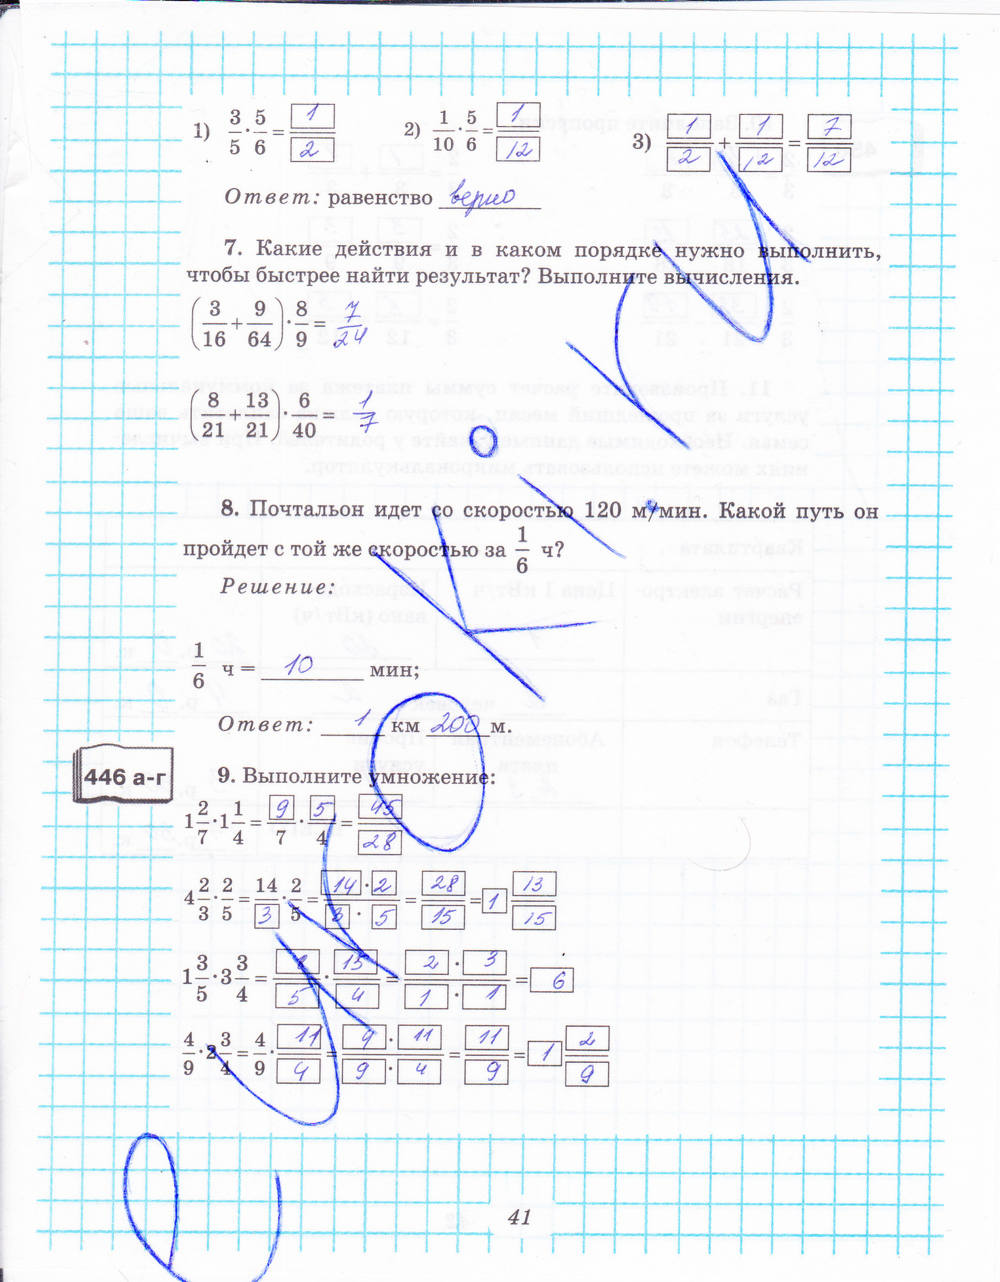 1) 3/5 · 5/6 = 1/2 2) 1/10 · 5/6 = 1/12 3) 1/2 + 1/12 = 7/12
Ответ: равенство верно
7. Какие действия и в каком порядке нужно выполнить,
чтобы быстрее найти результат? Выполните вычисления.
(3/16 + 9/64) · 8/9 = 7/24
(8/21 + 13/21) · 6/40 = 1/7
8. Почтальон идет со скоростью 120 м/мин. Какой путь он
пройдет с той же скоростью за 1/6 ч?
Решение:
1/6 ч = 10 мин;
Ответ: 1 км 200 м.
446 а-г
9. Выполните умножение:
1 2/7 · 1 1/4 = 9/7 · 5/4 = 45/28
4 2/3 · 2/5 = 14/3 · 2/5 = 14 · 2/3 · 5 = 28/15 = 1 13/15
1 3/5 · 3 3/4 = 8/5 · 15/4 = 2 · 3/1 · 1 = 6
4/9 · 2 3/4 = 4/9 · 11/4 = 4 · 11/9 · 4 = 11/9 = 1 2/9
41